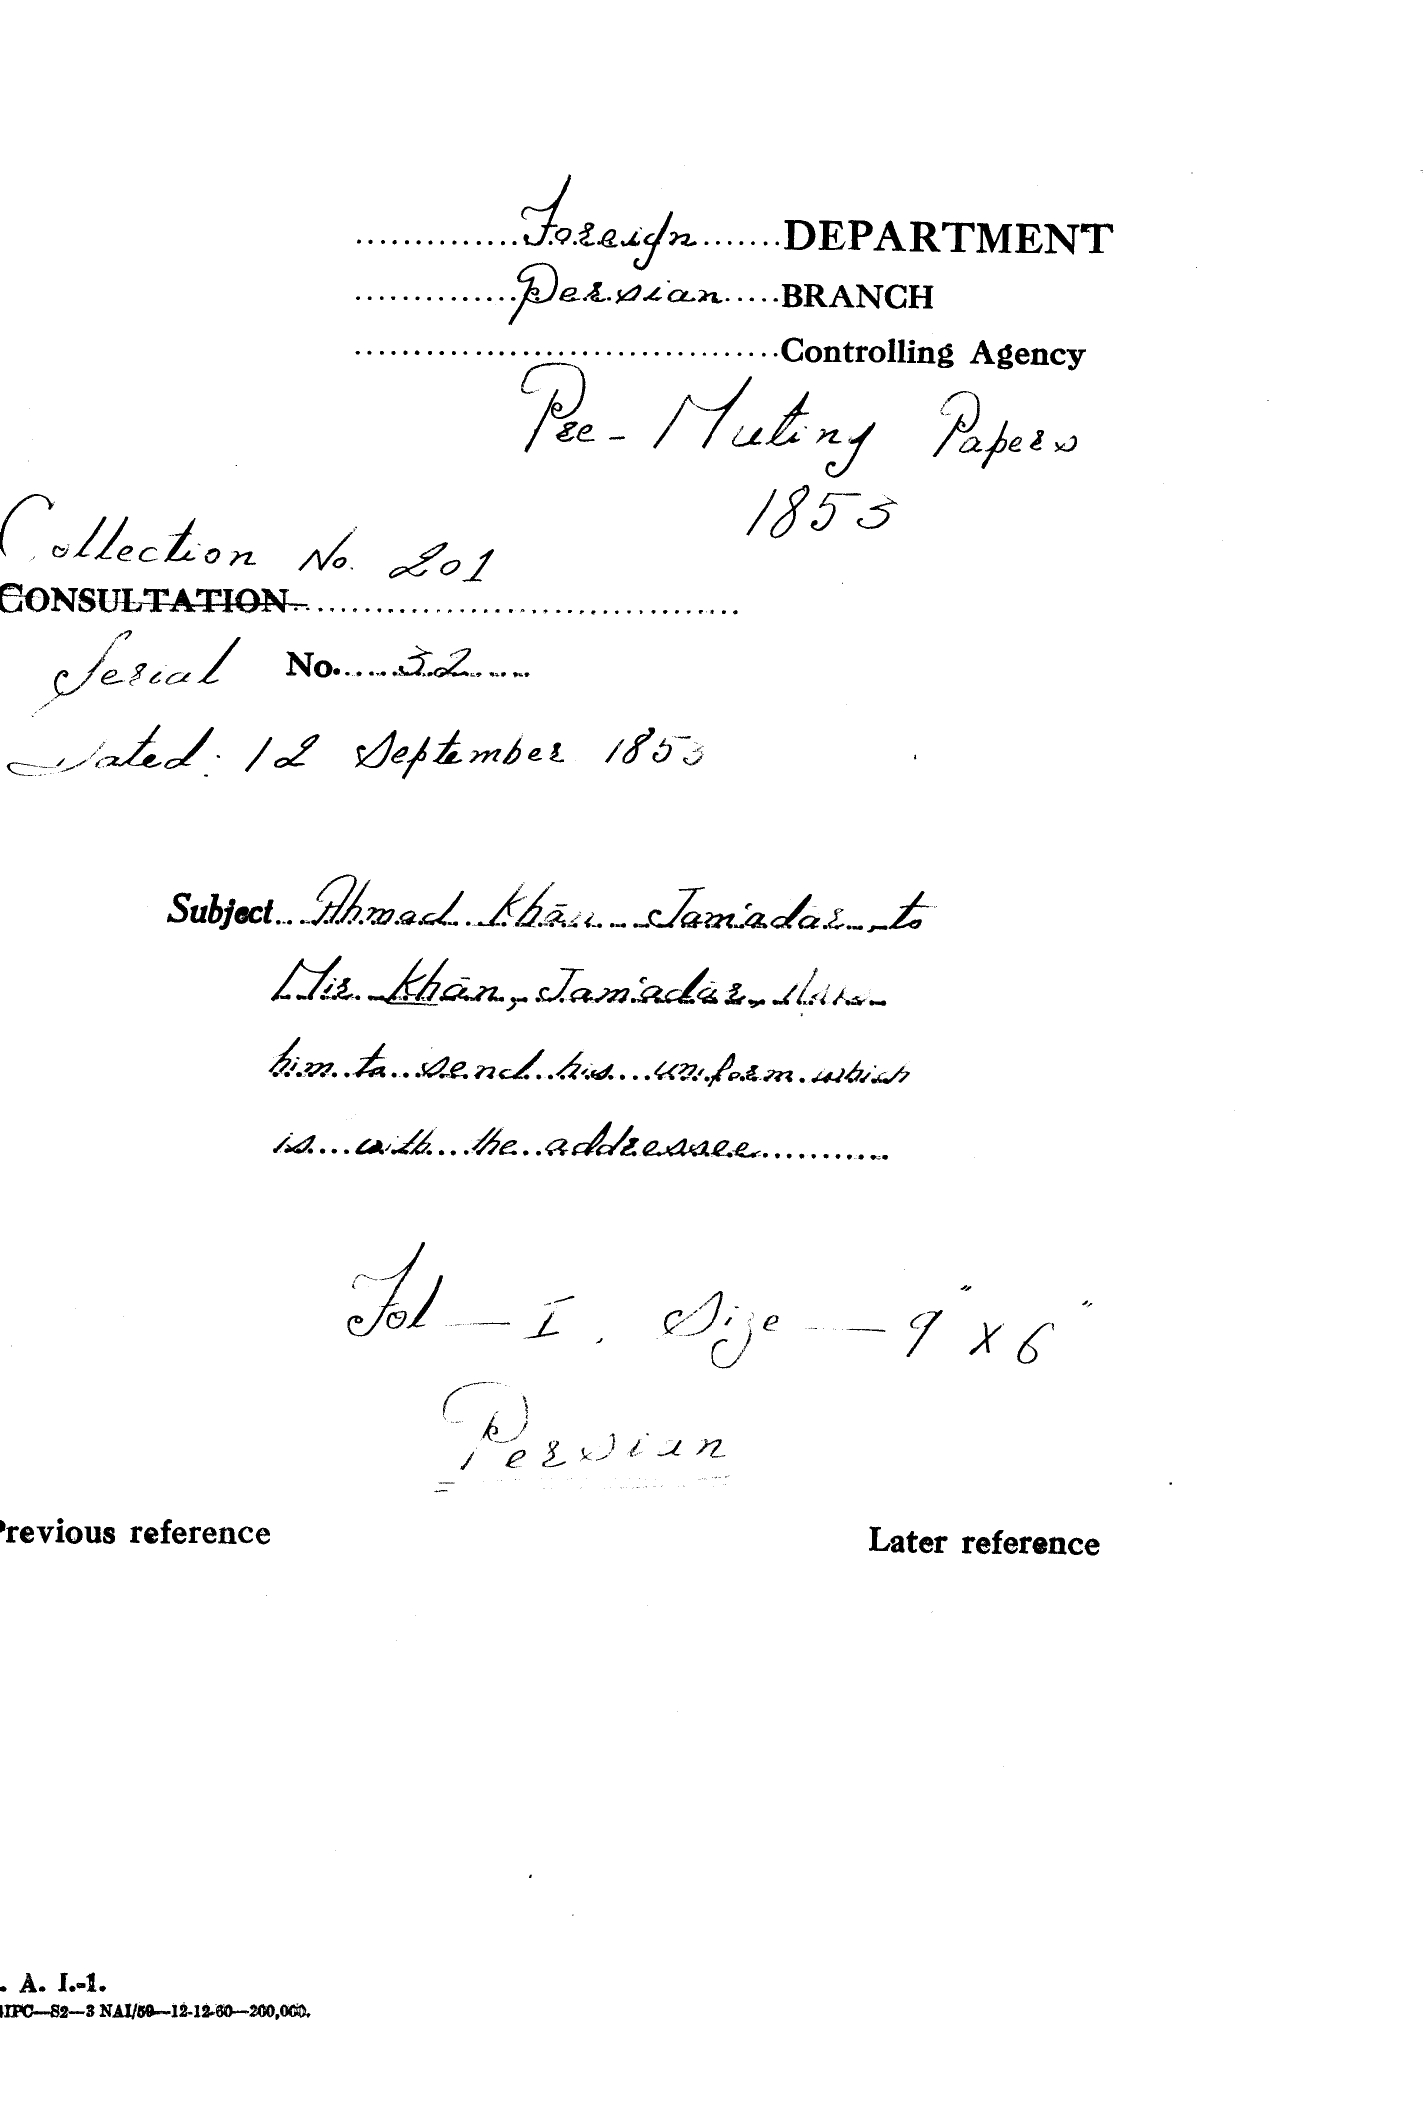 Foreign DEPARTMENT
Persian BRANCH
Controlling Agency
Pre-Mutiny Papers
1853
Collection No. 201
CONSULTATION
Serial No. 32
Dated: 12 September 1853
Subject Ahmad Khān Jam'adar to
Mir Khān, Jam'adār,
him to send his uniform which
is with the addressee
Fol — I. Size — 9" X 6"
Persian
Previous reference
Later reference
. A. I.-1.
IPC—S2—3 NAI/59—12-12-60—200,000.